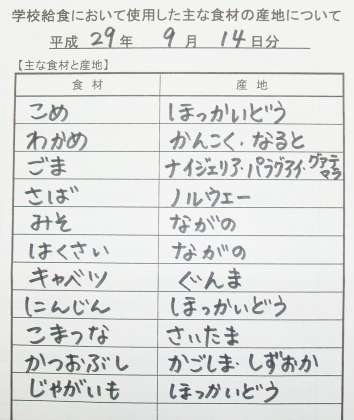 学校給食において使用した主な食材の産地について
平成 29 年 9 月 14 日分
【主な食材と産地】
食材 産地
こめ ほっかいどう
わかめ かんこく・なると
ごま ナイジェリア・パラグアイ・グァテマラ
さば ノルウェー
みそ ながの
はくさい ながの
キャベツ ぐんま
にんじん ほっかいどう
こまつな さいたま
かつおぶし かごしま・しずおか
じゃがいも ほっかいどう